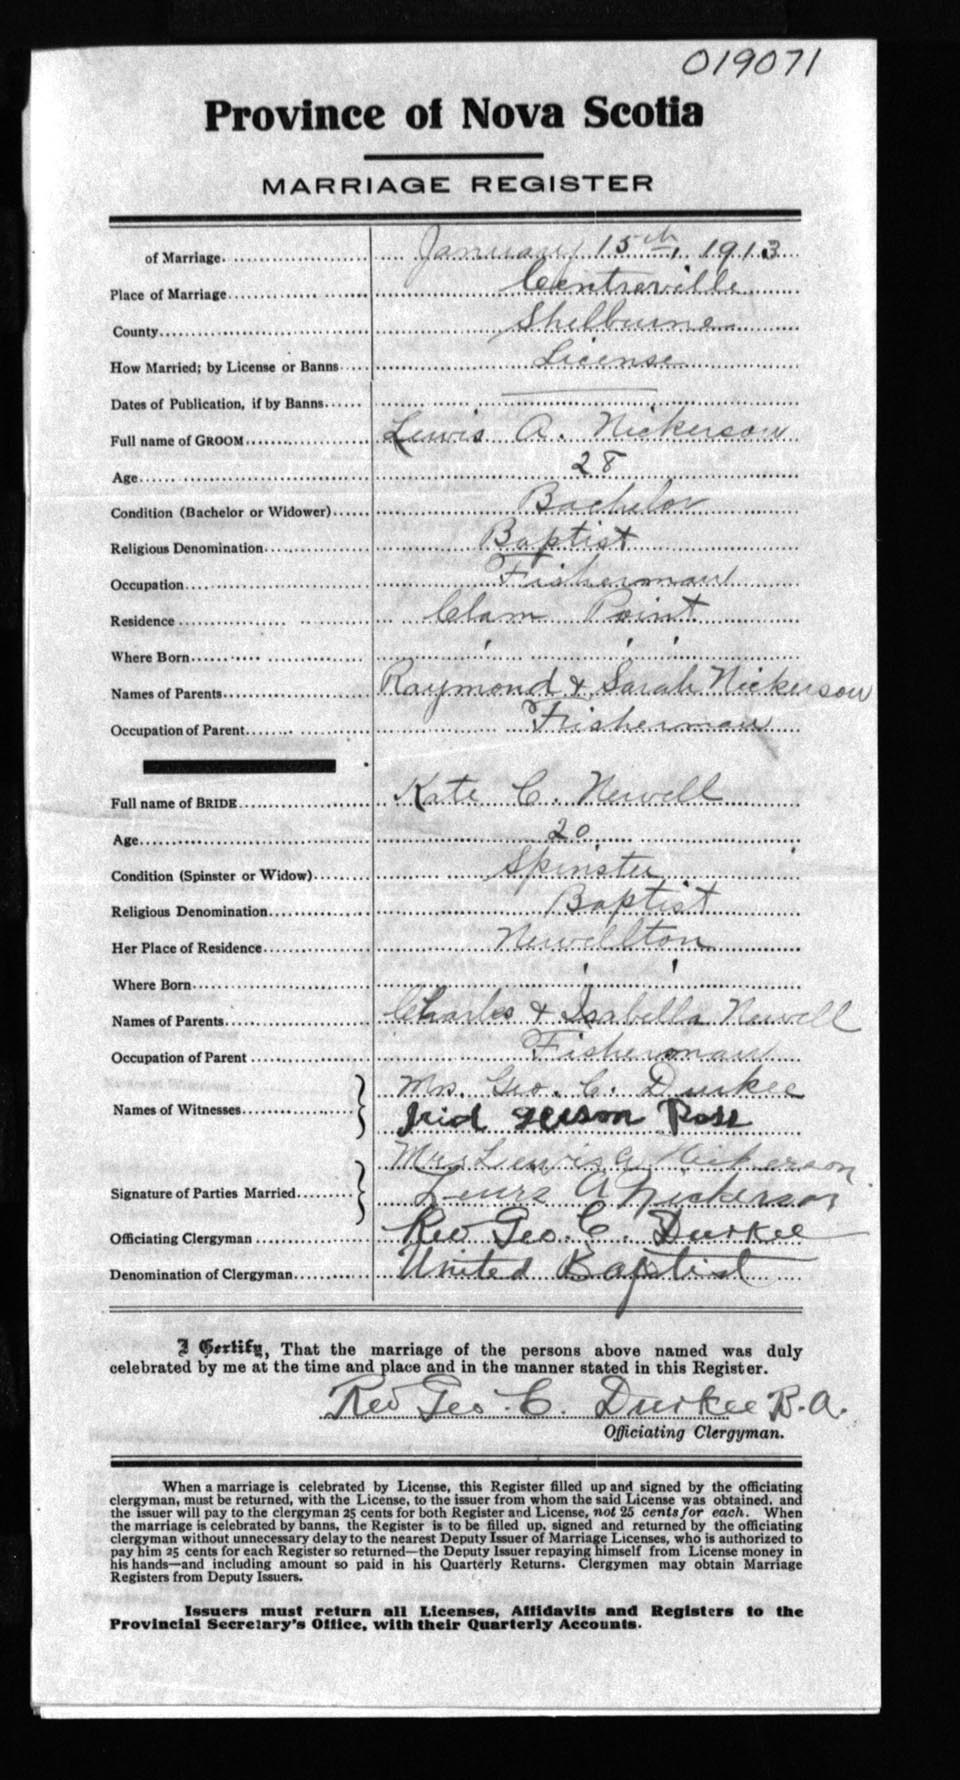 019071
Province of Nova Scotia
MARRIAGE REGISTER
of Marriage. January 15th, 1913
Place of Marriage Centreville
County Shelburne
How Married; by License or Banns License
Dates of Publication, if by Banns ——
Full name of GROOM Lewis A. Nickerson
Age 28
Condition (Bachelor or Widower) Bachelor
Religious Denomination Baptist
Occupation Fisherman
Residence Clam Point
Where Born ' ' '
Names of Parents Raymond & Sarah Nickerson
Occupation of Parent Fisherman
Full name of BRIDE Kate C. Newell
Age 20
Condition (Spinster or Widow) Spinster
Religious Denomination Baptist
Her Place of Residence Newellton
Where Born ' '
Names of Parents Charles & Isabella Newell
Occupation of Parent Fisherman
Mrs. Geo. C. Durkee
Names of Witnesses
Ross
Mrs Lewis A Nickerson
Signature of Parties Married Lewis A Nickerson
Officiating Clergyman Rev Geo. C. Durkee
Denomination of Clergyman United Baptist
I Certify, That the marriage of the persons above named was duly
celebrated by me at the time and place and in the manner stated in this Register.
Rev Geo. C. Durkee B.A.
Officiating Clergyman.
When a marriage is celebrated by License, this Register filled up and signed by the officiating
clergyman, must be returned, with the License, to the issuer from whom the said License was obtained, and
the issuer will pay to the clergyman 25 cents for both Register and License, not 25 cents for each. When
the marriage is celebrated by banns, the Register is to be filled up, signed and returned by the officiating
clergyman without unnecessary delay to the nearest Deputy Issuer of Marriage Licenses, who is authorized to
pay him 25 cents for each Register so returned—the Deputy Issuer repaying himself from License money in
his hands—and including amount so paid in his Quarterly Returns. Clergymen may obtain Marriage
Registers from Deputy Issuers.
Issuers must return all Licenses, Affidavits and Registers to the
Provincial Secretary's Office, with their Quarterly Accounts.